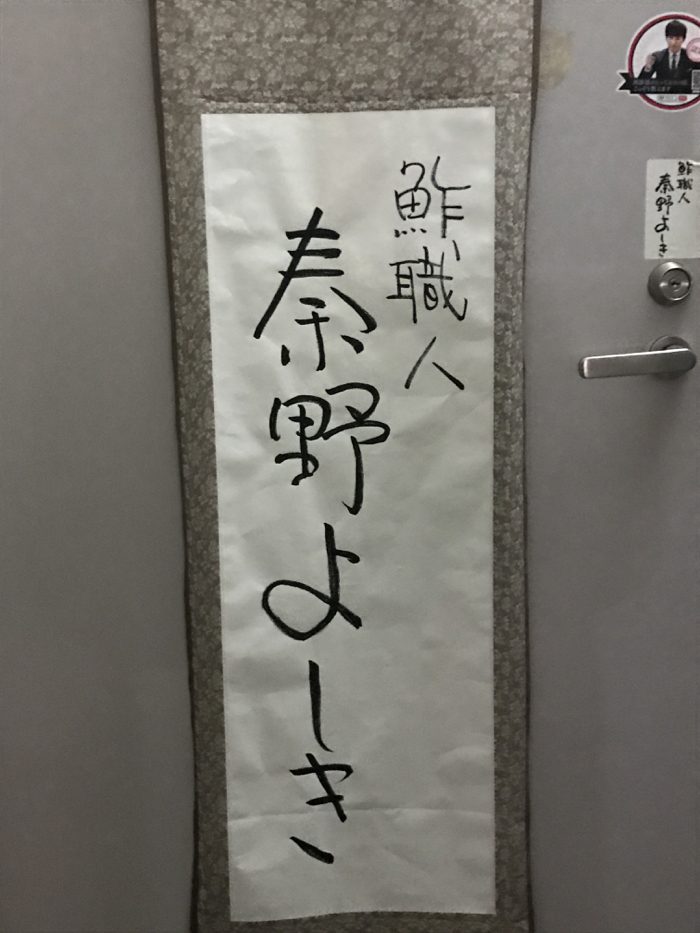 鮓職人
秦野よしき
鮓職人
秦野よしき